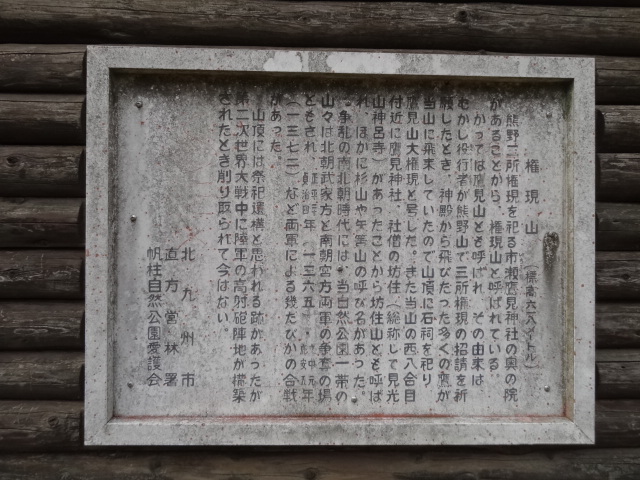 権現山 (標高六一八メートル)
熊野三所権現を祀る市瀬鷹見神社の奥の院
があることから、権現山と呼ばれている。
かつては鷹見山とも呼ばれ、その由来は
むかし役行者が熊野山で三所権現の招請を祈
願したとき、神殿から飛びたった多くの鷹が
当山に飛来していたので山頂に石祠を祀り
鷹見山大権現と号した。また当山の西八合目
付近に鷹見神社、社僧の坊住(総称して見光
山神呂寺)があったことから坊住山とも呼ば
れ、ほかに杉山や矢筈山の呼び名があった。
争乱の南北朝時代には、当自然公園一帯の
山々は北朝武家方と南朝宮方両軍の争奪の場
とされ、貞治四年(一三六五)・応安五年
(一三七二)など両軍による幾たびかの合戦
があった。
山頂には祭祀遺構と思われる跡があったが
第二次世界大戦中に陸軍の高射砲陣地が構築
されたとき削り取られて今はない。
北九州市
直方営林署
帆柱自然公園愛護会